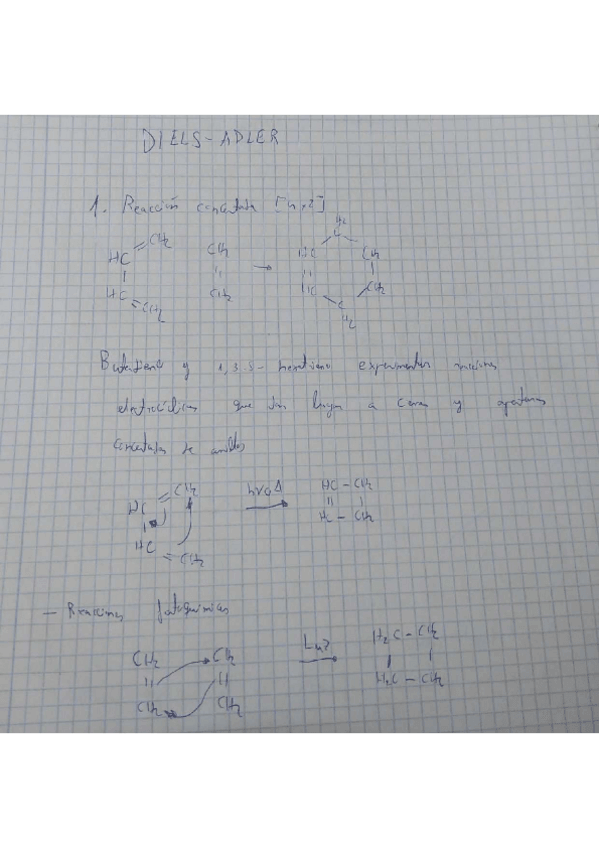 DIELS-ADLER
1. Reacción concertada [4+2]
H2
C
HC = CH2 CH2 HC CH2
| || → || |
HC = CH2 CH2 HC CH2
C
H2
Butadieno y 1,3,5-hexatrieno experimentan reacciones
electrocíclicas que dan lugar a cierres y aperturas
concertadas de anillos
HC = CH2 hν o Δ HC - CH2
| → || |
HC = CH2 H - CH2
- Reacciones fotoquímicas
CH2 CH2 Luz H2C - CH2
|| || → | |
CH2 CH2 H2C - CH2